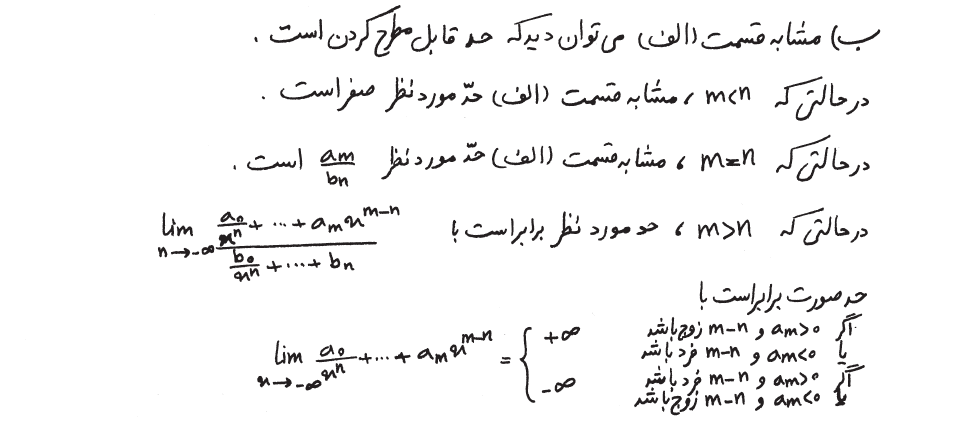 ب) مشابه قسمت (الف) می توان دید که حد قابل مطرح کردن است.
در حالتی که m<n ، مشابه قسمت (الف) حدّ مورد نظر صفر است.
در حالتی که m=n ، مشابه قسمت (الف) حدّ مورد نظر am/bn است.
در حالتی که m>n ، حد مورد نظر برابر است با lim n→-∞ (a₀/xⁿ + ... + aₘxᵐ⁻ⁿ)/(b₀/xⁿ + ... + bₙ)
حد صورت برابر است با
lim x→-∞ a₀/xⁿ + ... + aₘxᵐ⁻ⁿ = { +∞ اگر am>0 و m-n زوج باشد
یا am<0 و m-n فرد باشد
-∞ اگر am>0 و m-n فرد باشد
یا am<0 و m-n زوج باشد